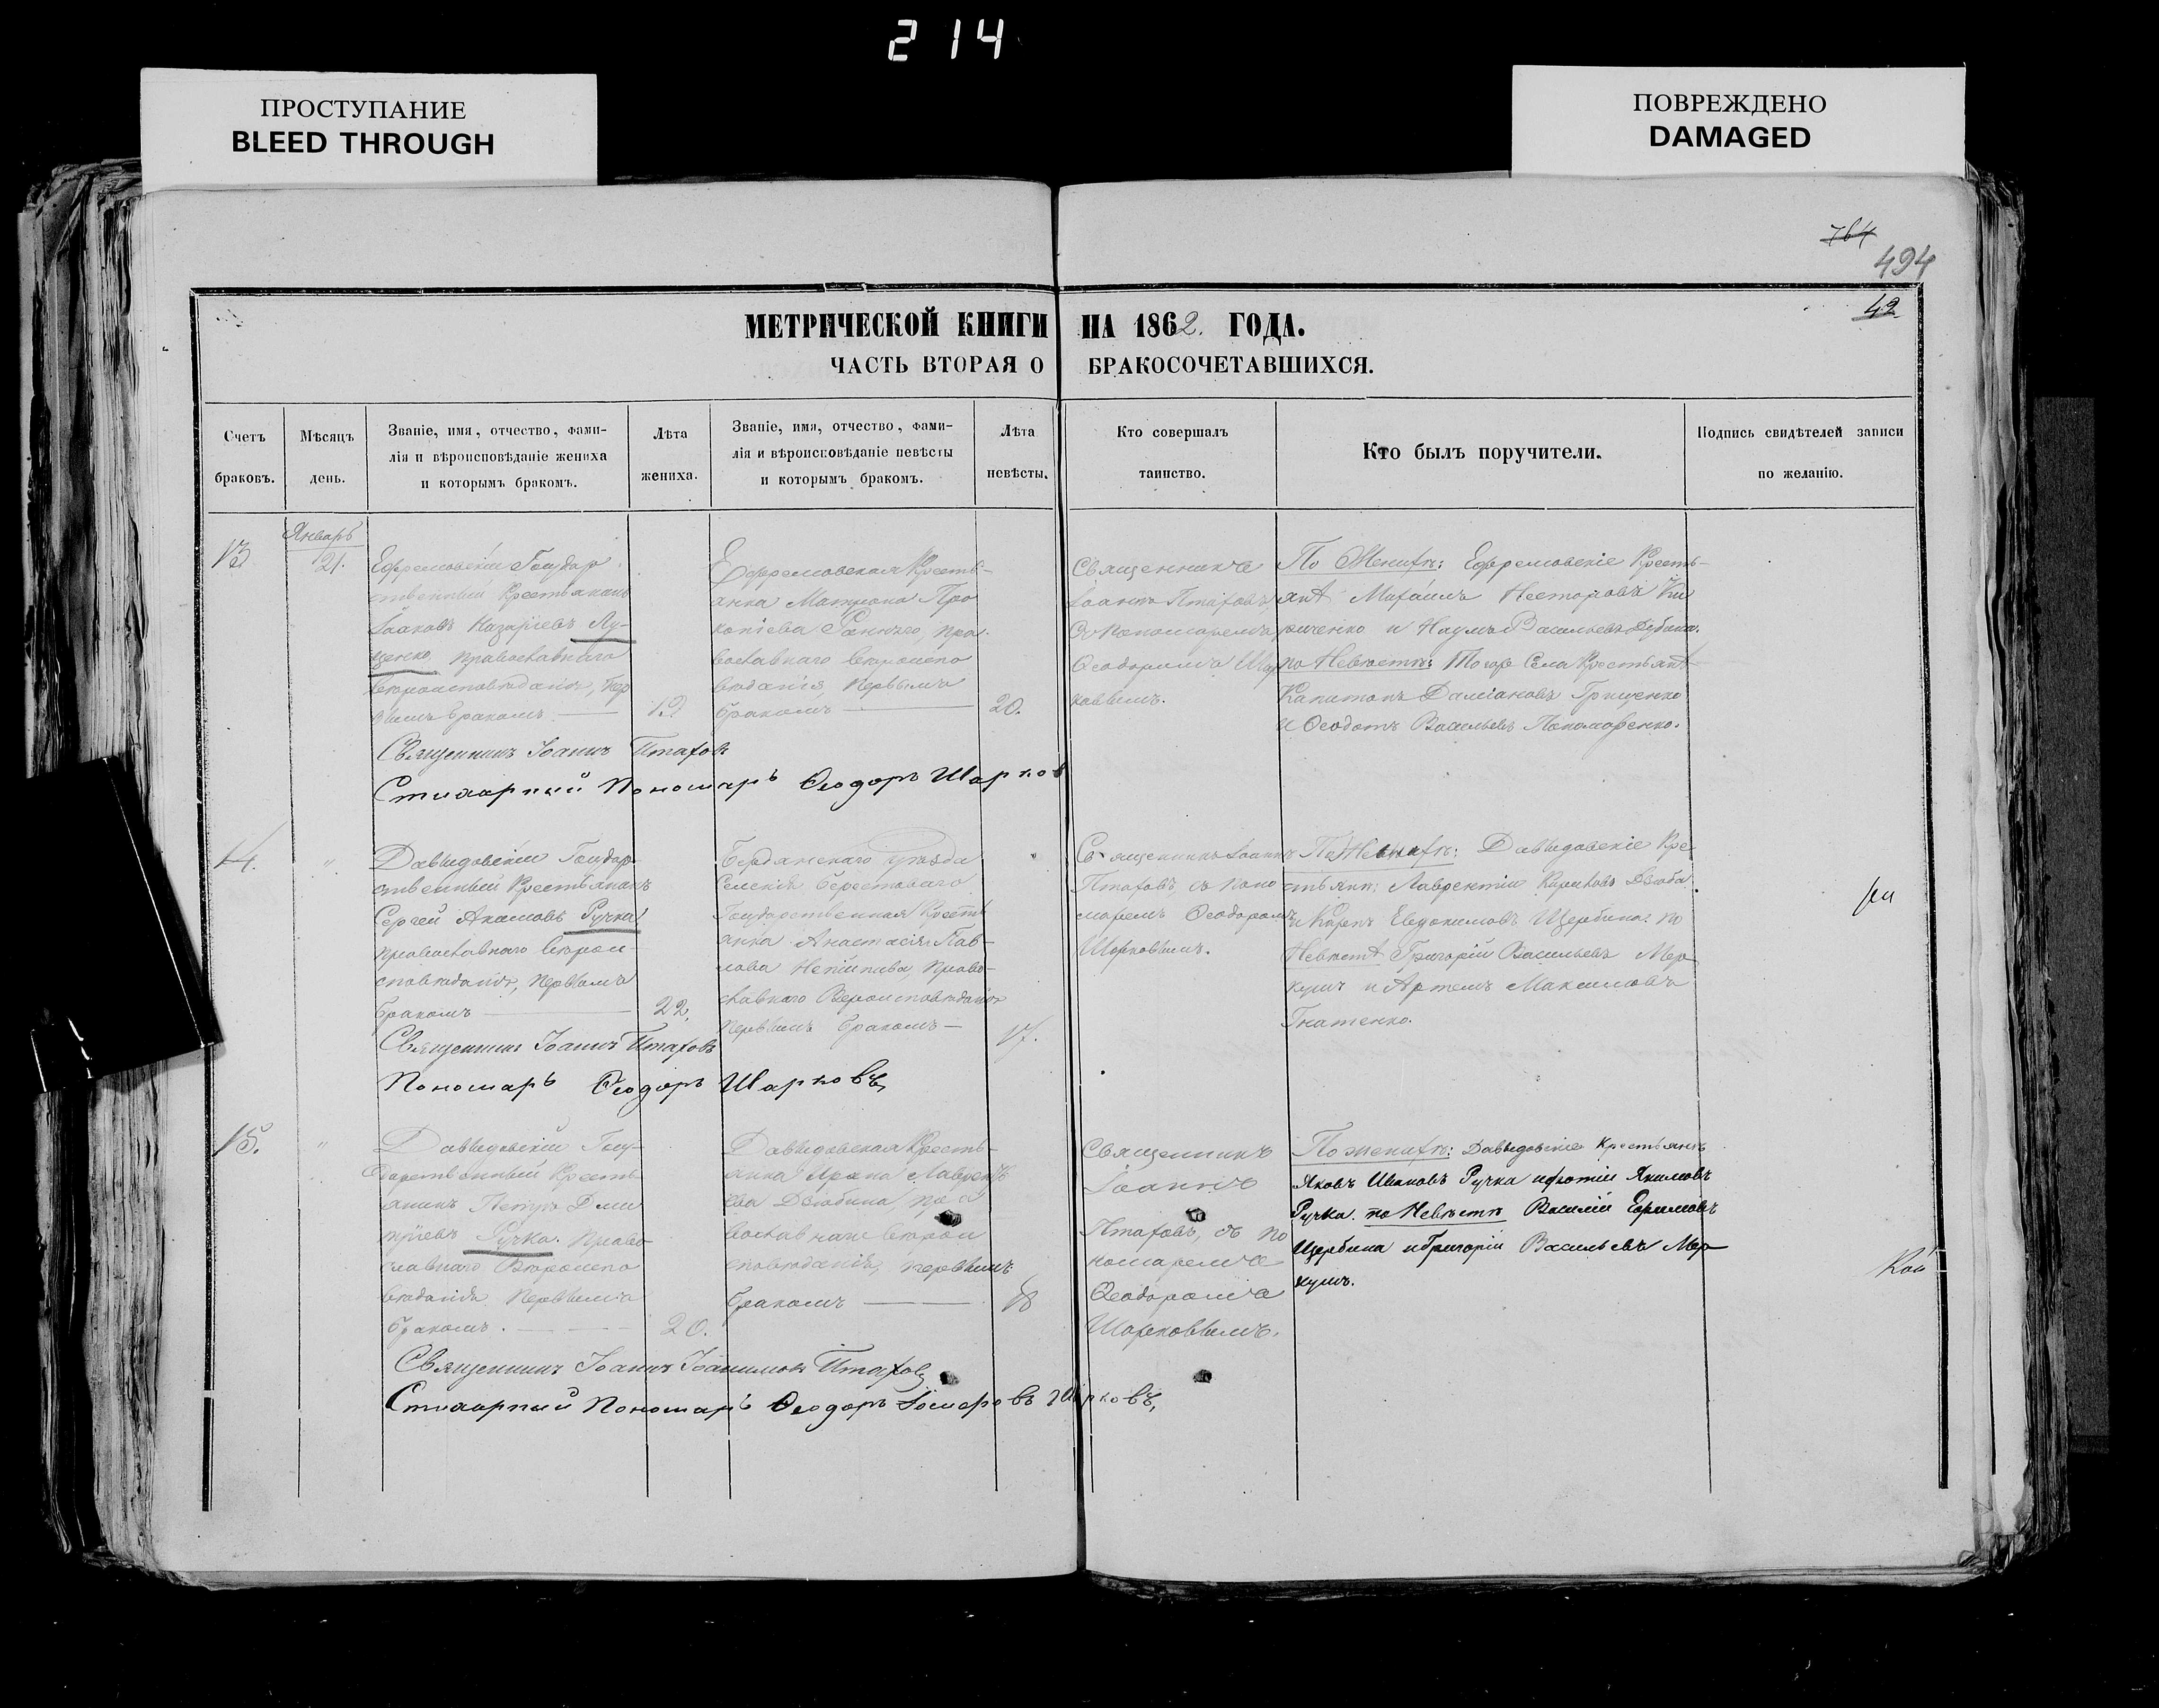 214
ПРОСТУПАНИЕ
BLEED THROUGH
ПОВРЕЖДЕНО
DAMAGED
764
494
42
МЕТРИЧЕСКОЙ КНИГИ НА 1862. ГОДА.
ЧАСТЬ ВТОРАЯ О БРАКОСОЧЕТАВШИХСЯ.
Счетъ
браковъ.
Мѣсяцъ
день.
Званіе, имя, отчество, фами-
лія и вѣроисповѣданіе жениха
и которымъ бракомъ.
Лѣта
жениха.
Званіе, имя, отчество, фами-
лія и вѣроисповѣданіе невѣсты
и которымъ бракомъ.
Лѣта
невѣсты.
Кто совершалъ
таинство.
Кто былъ поручители.
Подпись свидѣтелей записи
по желанію.
13
Январь
21.
Ефремовскій Государ
ственный Крестьянинъ
Іоаковъ Назаріевъ Лу-
ценко православнаго
вѣроисповѣданія, пер
вымъ бракомъ
Ефремовская Кресть-
янка Матрона Про
копіева, пра-
вославнаго вѣроиспо
вѣданія, первымъ
бракомъ
20.
Священникъ
Іоаннъ Птаховъ
съ Пономаремъ
Ѳеодоромъ Шар
ковымъ.
По Женихѣ: Ефремовскіе Кресть-
янѣ Михаилъ Несторовъ Ки
риченко и Наумъ Васильевъ Дубина.
по Невѣстѣ: Тогоже Села Крестьянѣ
Капитонъ Даміановъ Грищенко
и Ѳеодотъ Васильевъ Пономаренко.
Священникъ Іоаннъ Птаховъ
Стихарный Пономарь Ѳеодоръ Шарков
14.
"
Давыдовскій Государ
ственный Крестьянинъ
Сергей Акимовъ Ручка
православнаго вѣрои
сповѣданія, первымъ
бракомъ
22.
Бердянскаго Уѣзда
Селенія Берестоваго
Государственная Кресть
янка Анастасія Пав-
лова Непіипива, право-
славнаго Вероисповѣданія
первымъ бракомъ
17.
Священникъ Іоаннъ
Птаховъ съ поно
маремъ Ѳеодоромъ
Шарковымъ.
По Женихѣ: Давыдовскіе Кре
стьянѣ: Лаврентій Кириловъ Дзюба
и Карпъ Евдокимовъ Щербина. по
Невѣстѣ Григорій Васильевъ Мер
кушъ и Артемъ Максимовъ
Гнатенко.
Священникъ Іоаннъ Птаховъ
Пономарь Ѳеодоръ Шарковъ,
15.
"
Давыдовскій Госу-
дарственный Кресть
янинъ Петръ Дми
тріевъ Ручка. Право
славнаго Вѣроиспо
вѣданія Первымъ
бракомъ.
20.
Давыдовская Кресть-
янка Ирина Лаврентіе
ва Дзюбина, пра
вославнаго вѣрои
сповѣданія, первымъ
бракомъ
18
Священникъ
Іоаннъ
Птаховъ, съ по
номаремъ
Ѳеодоромъ
Шарковымъ.
По женихѣ: Давыдовскіе Крестьянѣ
Яковъ Ивановъ Ручка и Фотій Якимовъ
Ручка. по Невѣстѣ Василій Ефимовъ
Щербина и Григорій Васильевъ Мер
кушъ.
Священникъ Іоаннъ Іоакимовъ Птаховъ
Стихарный Пономарь Ѳеодоръ Шарковъ,